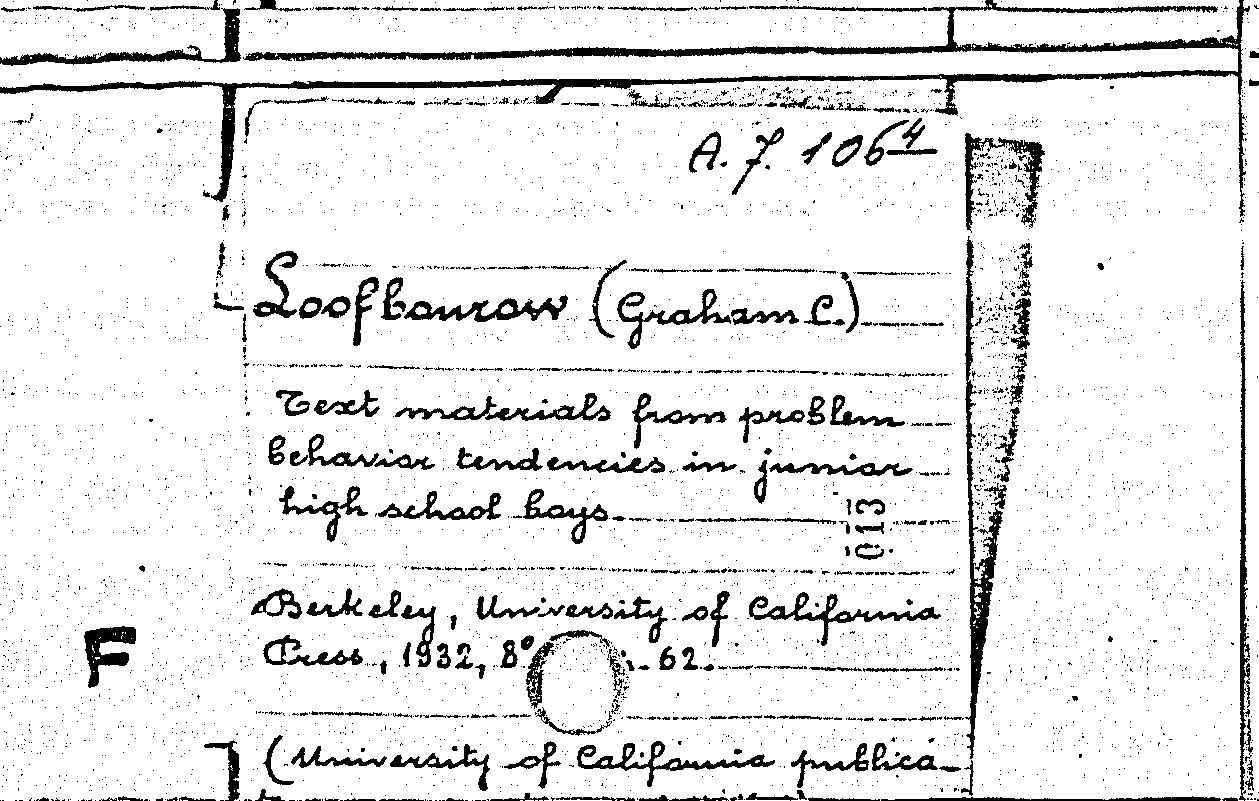 A. 7. 106 4
Loofbourow (Graham C.)
Text materials from problem
behavior tendencies in junior
high school boys.
013
Berkeley, University of California
Press, 1932, 8° . 62.
F
(University of California publica-